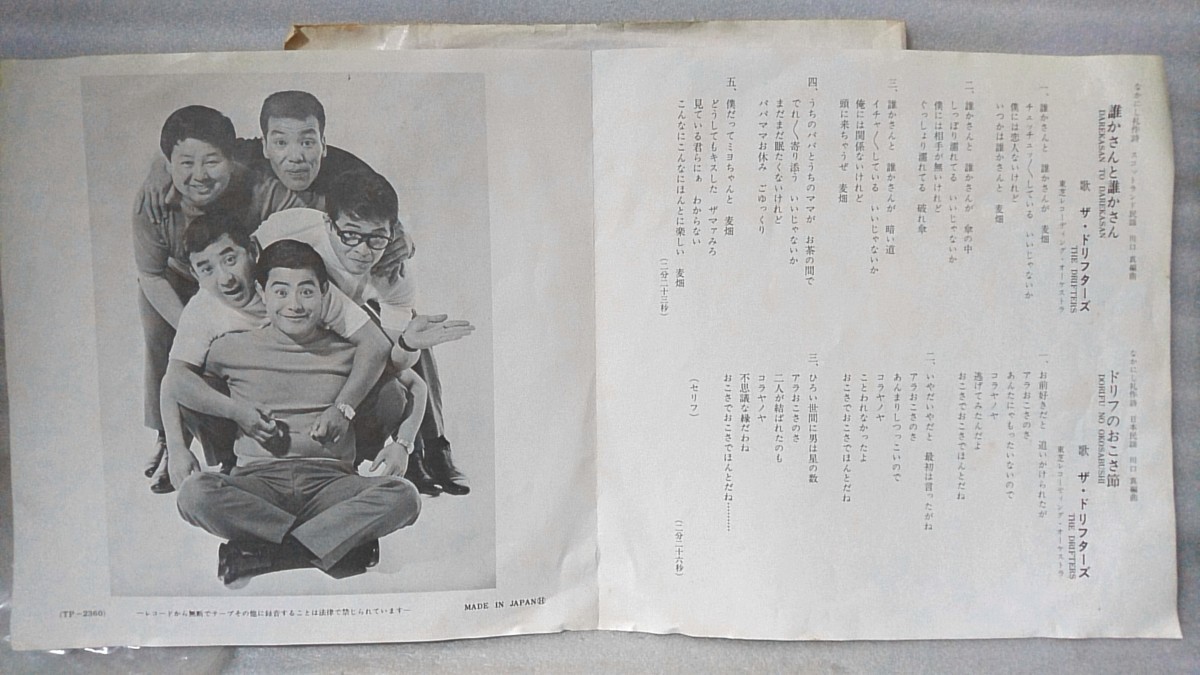 なかにし礼作詩　スコットランド民謡　川口　真編曲
誰かさんと誰かさん
DAREKASAN TO DAREKASAN
歌　ザ・ドリフターズ
THE DRIFTERS
東芝レコーディング・オーケストラ
一、誰かさんと　誰かさんが　麦畑
チュッチュッ〱している　いいじゃないか
僕には恋人ないけれど
いつかは誰かさんと　麦畑
二、誰かさんと　誰かさんが　傘の中
しっぽり濡れてる　いいじゃないか
僕には相手が無いけれど
ぐっしょり濡れてる　破れ傘
三、誰かさんと　誰かさんが　暗い道
イチャ〱している　いいじゃないか
俺には関係ないけれど
頭に来ちゃうぜ　麦畑
四、うちのパパとうちのママが　お茶の間で
でれ〱寄り添う　いいじゃないか
まだまだ眠たくないけれど
パパママお休み　ごゆっくり
五、僕だってミヨちゃんと　麦畑
どうしてもキスした　ザマァみろ
見ている君らにぁ　わからない
こんなにこんなにほんとに楽しい　麦畑
（二分二十三秒）
なかにし礼作詩　日本民謡　川口　真編曲
ドリフのおこさ節
DORIFU NO OKOSABUSHI
歌　ザ・ドリフターズ
THE DRIFTERS
東芝レコーディング・オーケストラ
一、お前好きだと　追いかけられたが
アラおこさのさ
あんたにゃもったいないので
コラヤノヤ
逃げてみたんだよ
おこさでおこさでほんとだね
二、いやだいやだと　最初は言ったがね
アラおこさのさ
あんまりしつっこいので
コラヤノヤ
ことわれなかったよ
おこさでおこさでほんとだね
三、ひろい世間に男は星の数
アラおこさのさ
二人が結ばれたのも
コラヤノヤ
不思議な縁だわね
おこさでおこさでほんとだね………
（セリフ）
（二分二十六秒）
(TP-2360)
―レコードから無断でテープその他に録音することは法律で禁じられています―
MADE IN JAPAN Ⓗ